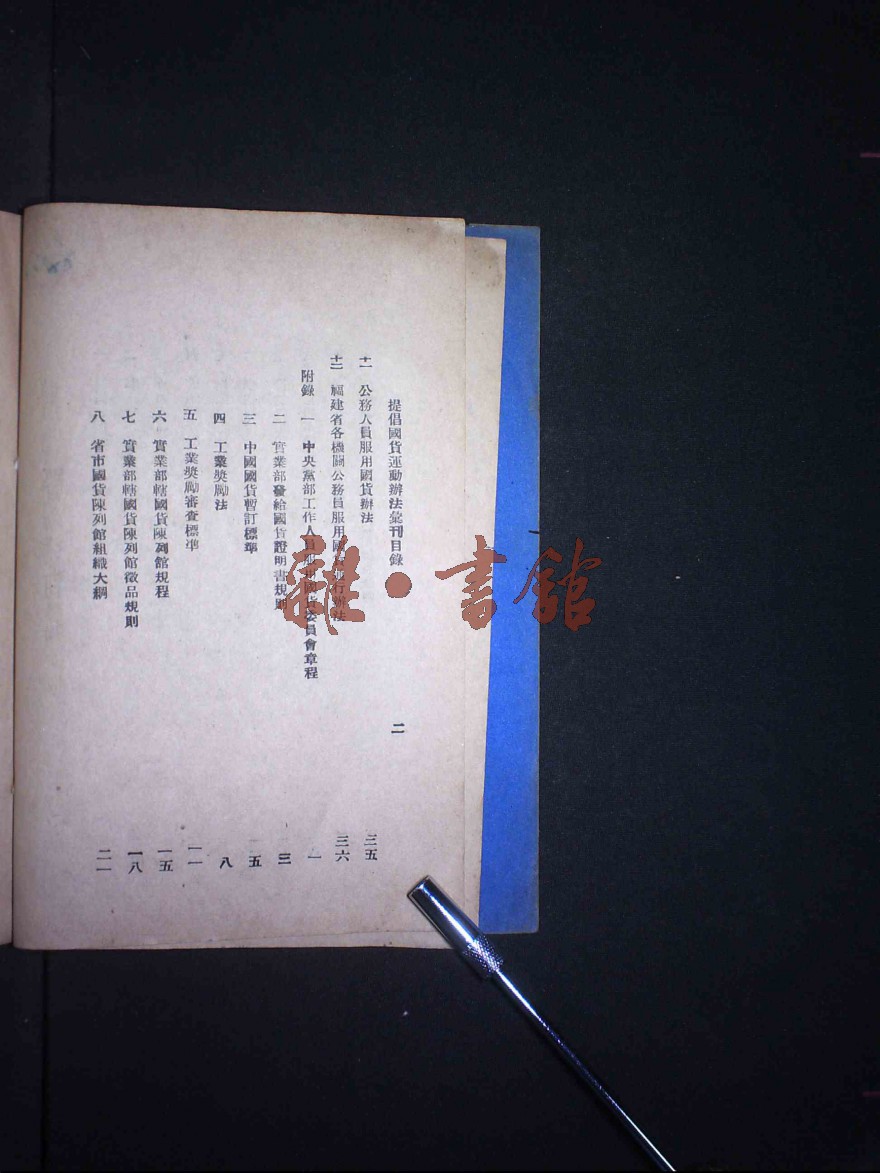 提倡國貨運動辦法彙刊目錄 二
十一 公務人員服用國貨辦法 三五
十二 福建省各機關公務員服用國 行辦法 三六
附錄 一 中央黨部工作人員服用國貨委員會章程 一
二 實業部發給國貨證明書規則 三
三 中國國貨暫訂標準 五
四 工業奬勵法 八
五 工業奬勵審查標準 一一
六 實業部轄國貨陳列館規程 一五
七 實業部轄國貨陳列館徵品規則 一八
八 省市國貨陳列館組織大綱 二一
雜·書館